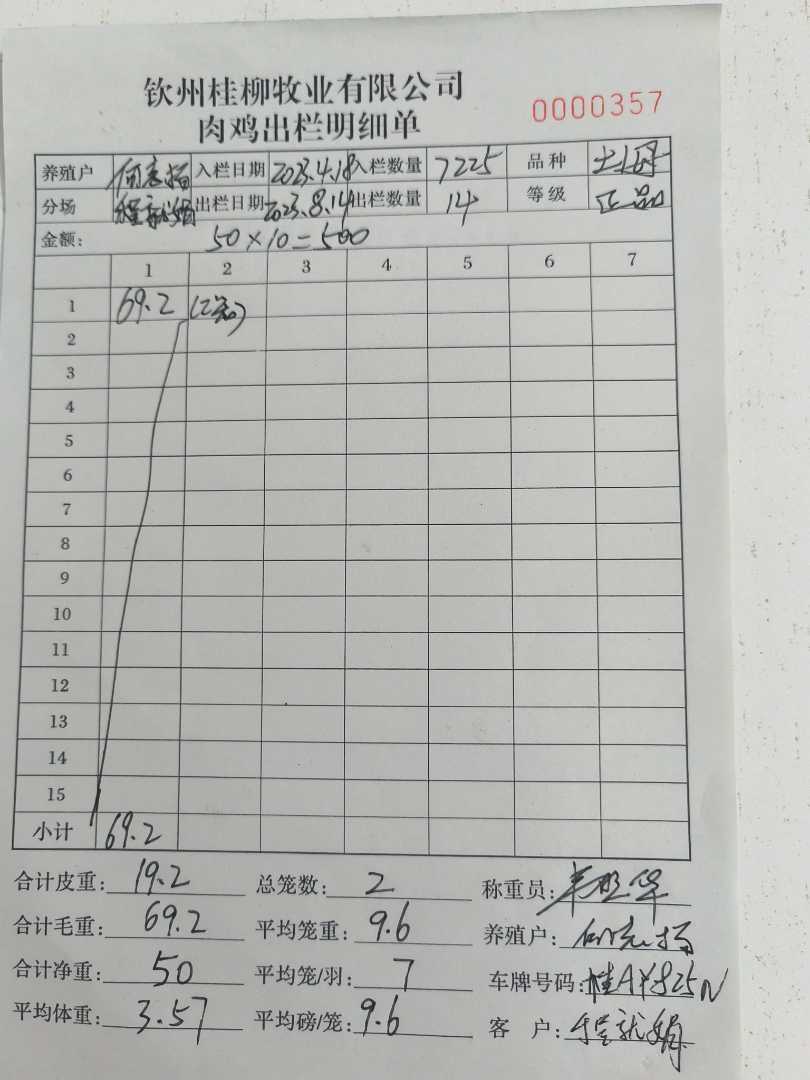 钦州桂柳牧业有限公司
肉鸡出栏明细单
0000357
养殖户 入栏日期 2023.4.18 入栏数量 7225 品种 土2
分场 程就娟 出栏日期 2023.8.14 出栏数量 14 等级 正品
金额: 50×10=500
1 2 3 4 5 6 7
1 69.2 (2笼)
2
3
4
5
6
7
8
9
10
11
12
13
14
15
小计 69.2
合计皮重: 19.2 总笼数: 2 称重员:
合计毛重: 69.2 平均笼重: 9.6 养殖户:
合计净重: 50 平均笼/羽: 7 车牌号码: 桂A¥825N
平均体重: 3.57 平均磅/笼: 9.6 客 户: 程就娟